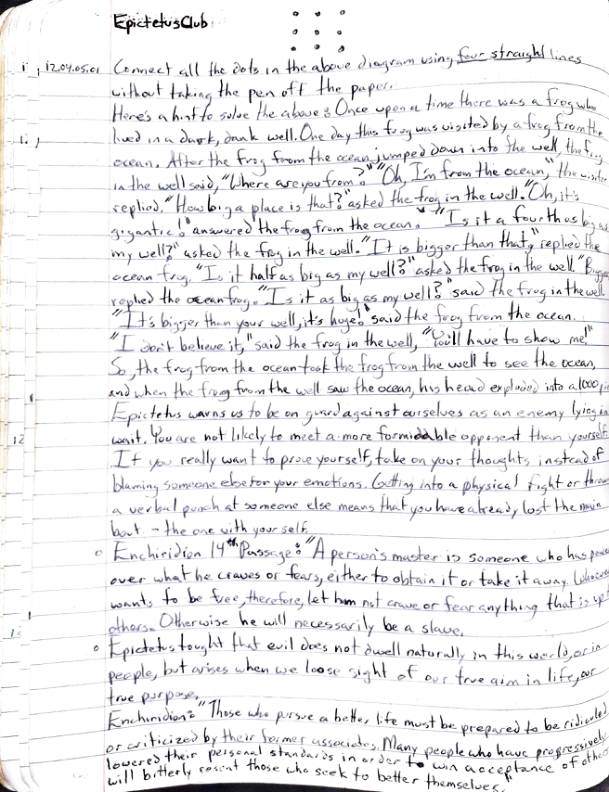 Epictetus Club
12.04.05.01 Connect all the dots in the above diagram using four straight lines
without taking the pen off the paper.
Here's a hint to solve the above: Once upon a time there was a frog who
lived in a dark, dank well. One day this frog was visited by a frog from the
ocean. After the frog from the ocean jumped down into the well, the frog
in the well said, "Where are you from?" "Oh, I'm from the ocean," the visitor
replied. "How big a place is that?" asked the frog in the well. "Oh, it's
gigantic!" answered the frog from the ocean. "Is it a fourth as big as
my well?" asked the frog in the well. "It is bigger than that," replied the
ocean frog. "Is it half as big as my well?" asked the frog in the well. "Bigger
replied the ocean frog. "Is it as big as my well?" said the frog in the well
"It's bigger than your well, it's huge!" said the frog from the ocean.
"I don't believe it," said the frog in the well, "You'll have to show me!"
So, the frog from the ocean took the frog from the well to see the ocean,
and when the frog from the well saw the ocean, his head exploded into a 1000
Epictetus warns us to be on guard against ourselves as an enemy lying in
wait. You are not likely to meet a more formidable opponent than yourself.
If you really want to prove yourself, take on your thoughts instead of
blaming someone else for your emotions. Getting into a physical fight or
a verbal punch at someone else means that you have already lost the main
bout - the one with yourself.
Enchiridion 14th Passage: "A person's master is someone who has
over what he craves or fears, either to obtain it or take it away. Whoever
wants to be free, therefore, let him not crave or fear anything that is up
others. Otherwise he will necessarily be a slave.
Epictetus taught that evil does not dwell naturally in this world, or in
people, but arises when we loose sight of our true aim in life, our
true purpose.
Enchiridion: "Those who pursue a better life must be prepared to be ridiculed
or criticized by their former associates. Many people who have progressively
lowered their personal standards in order to win acceptance of others
will bitterly resent those who seek to better themselves."
12